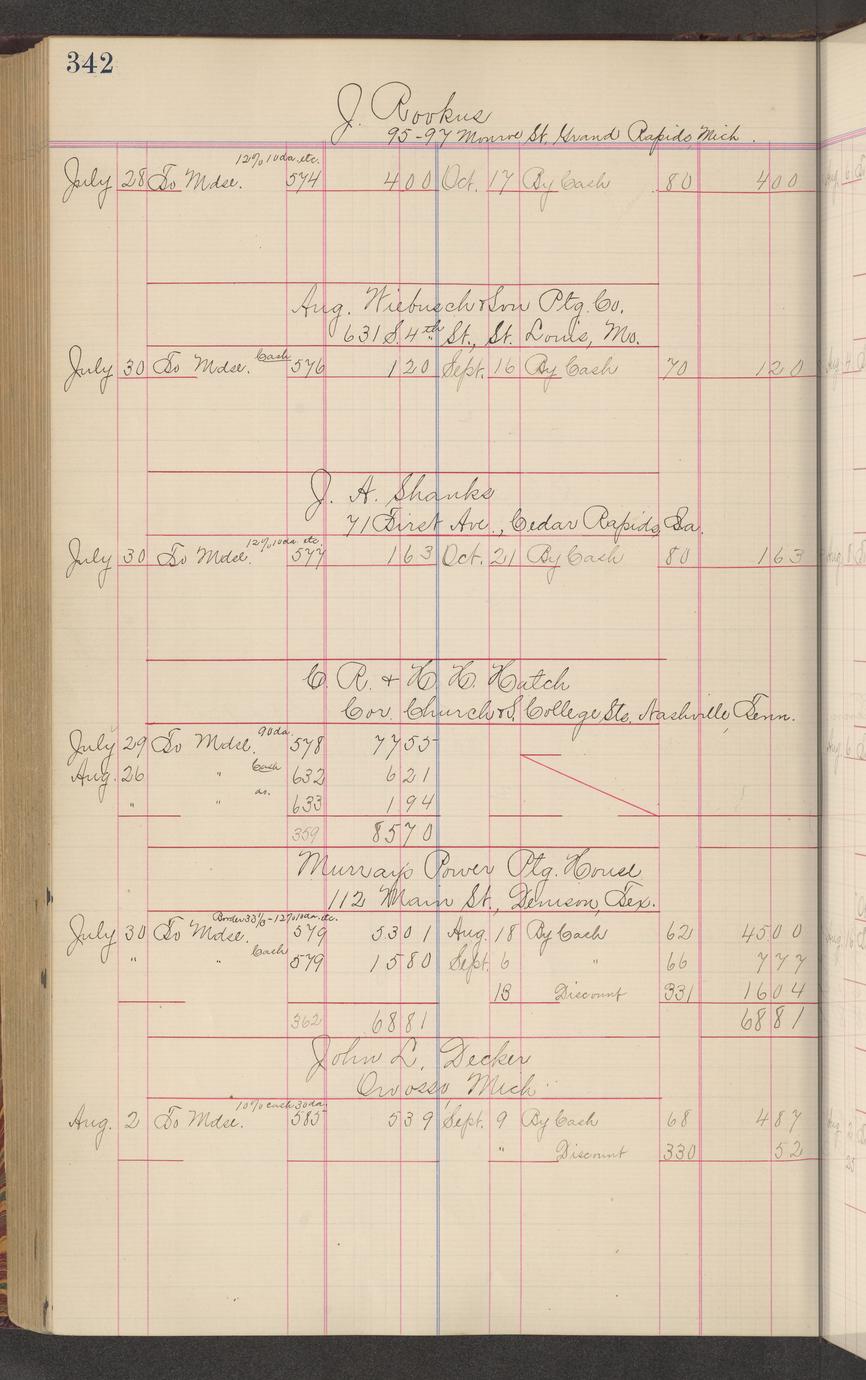 342
J. Rookus
95-97 Monroe St. Grand Rapids, Mich.
12% 10 da. etc.
July 28 To Mdse. 574 400 Oct. 17 By Cash 80 400
Aug. Wiebusch & Son Ptg. Co.
631 S. 4th St., St. Louis, Mo.
Cash
July 30 To Mdse. 576 120 Sept. 16 By Cash 70 120
J. A. Shanks
71 First Ave., Cedar Rapids, Ia.
12% 10 da. etc.
July 30 To Mdse. 577 163 Oct. 21 By Cash 80 163
C. R. & H. H. Hatch
Cor. Church & S. College Sts. Nashville, Tenn.
90 da.
July 29 To Mdse. 578 7755
Aug. 26 " Cash 632 621
" " as. 633 194
359 8570
Murray's Power Ptg. House
112 Main St., Denison, Tex.
Border 33⅓ - 12% 10 da. etc.
July 30 To Mdse. 579 5301 Aug. 18 By Cash 62 4500
" " Cash 579 1580 Sept. 6 " 66 777
13 Discount 331 1604
362 6881 6881
John L. Decker
Owosso, Mich.
10% cash 30 da.
Aug. 2 To Mdse. 585 539 Sept. 9 By Cash 68 487
" Discount 330 52